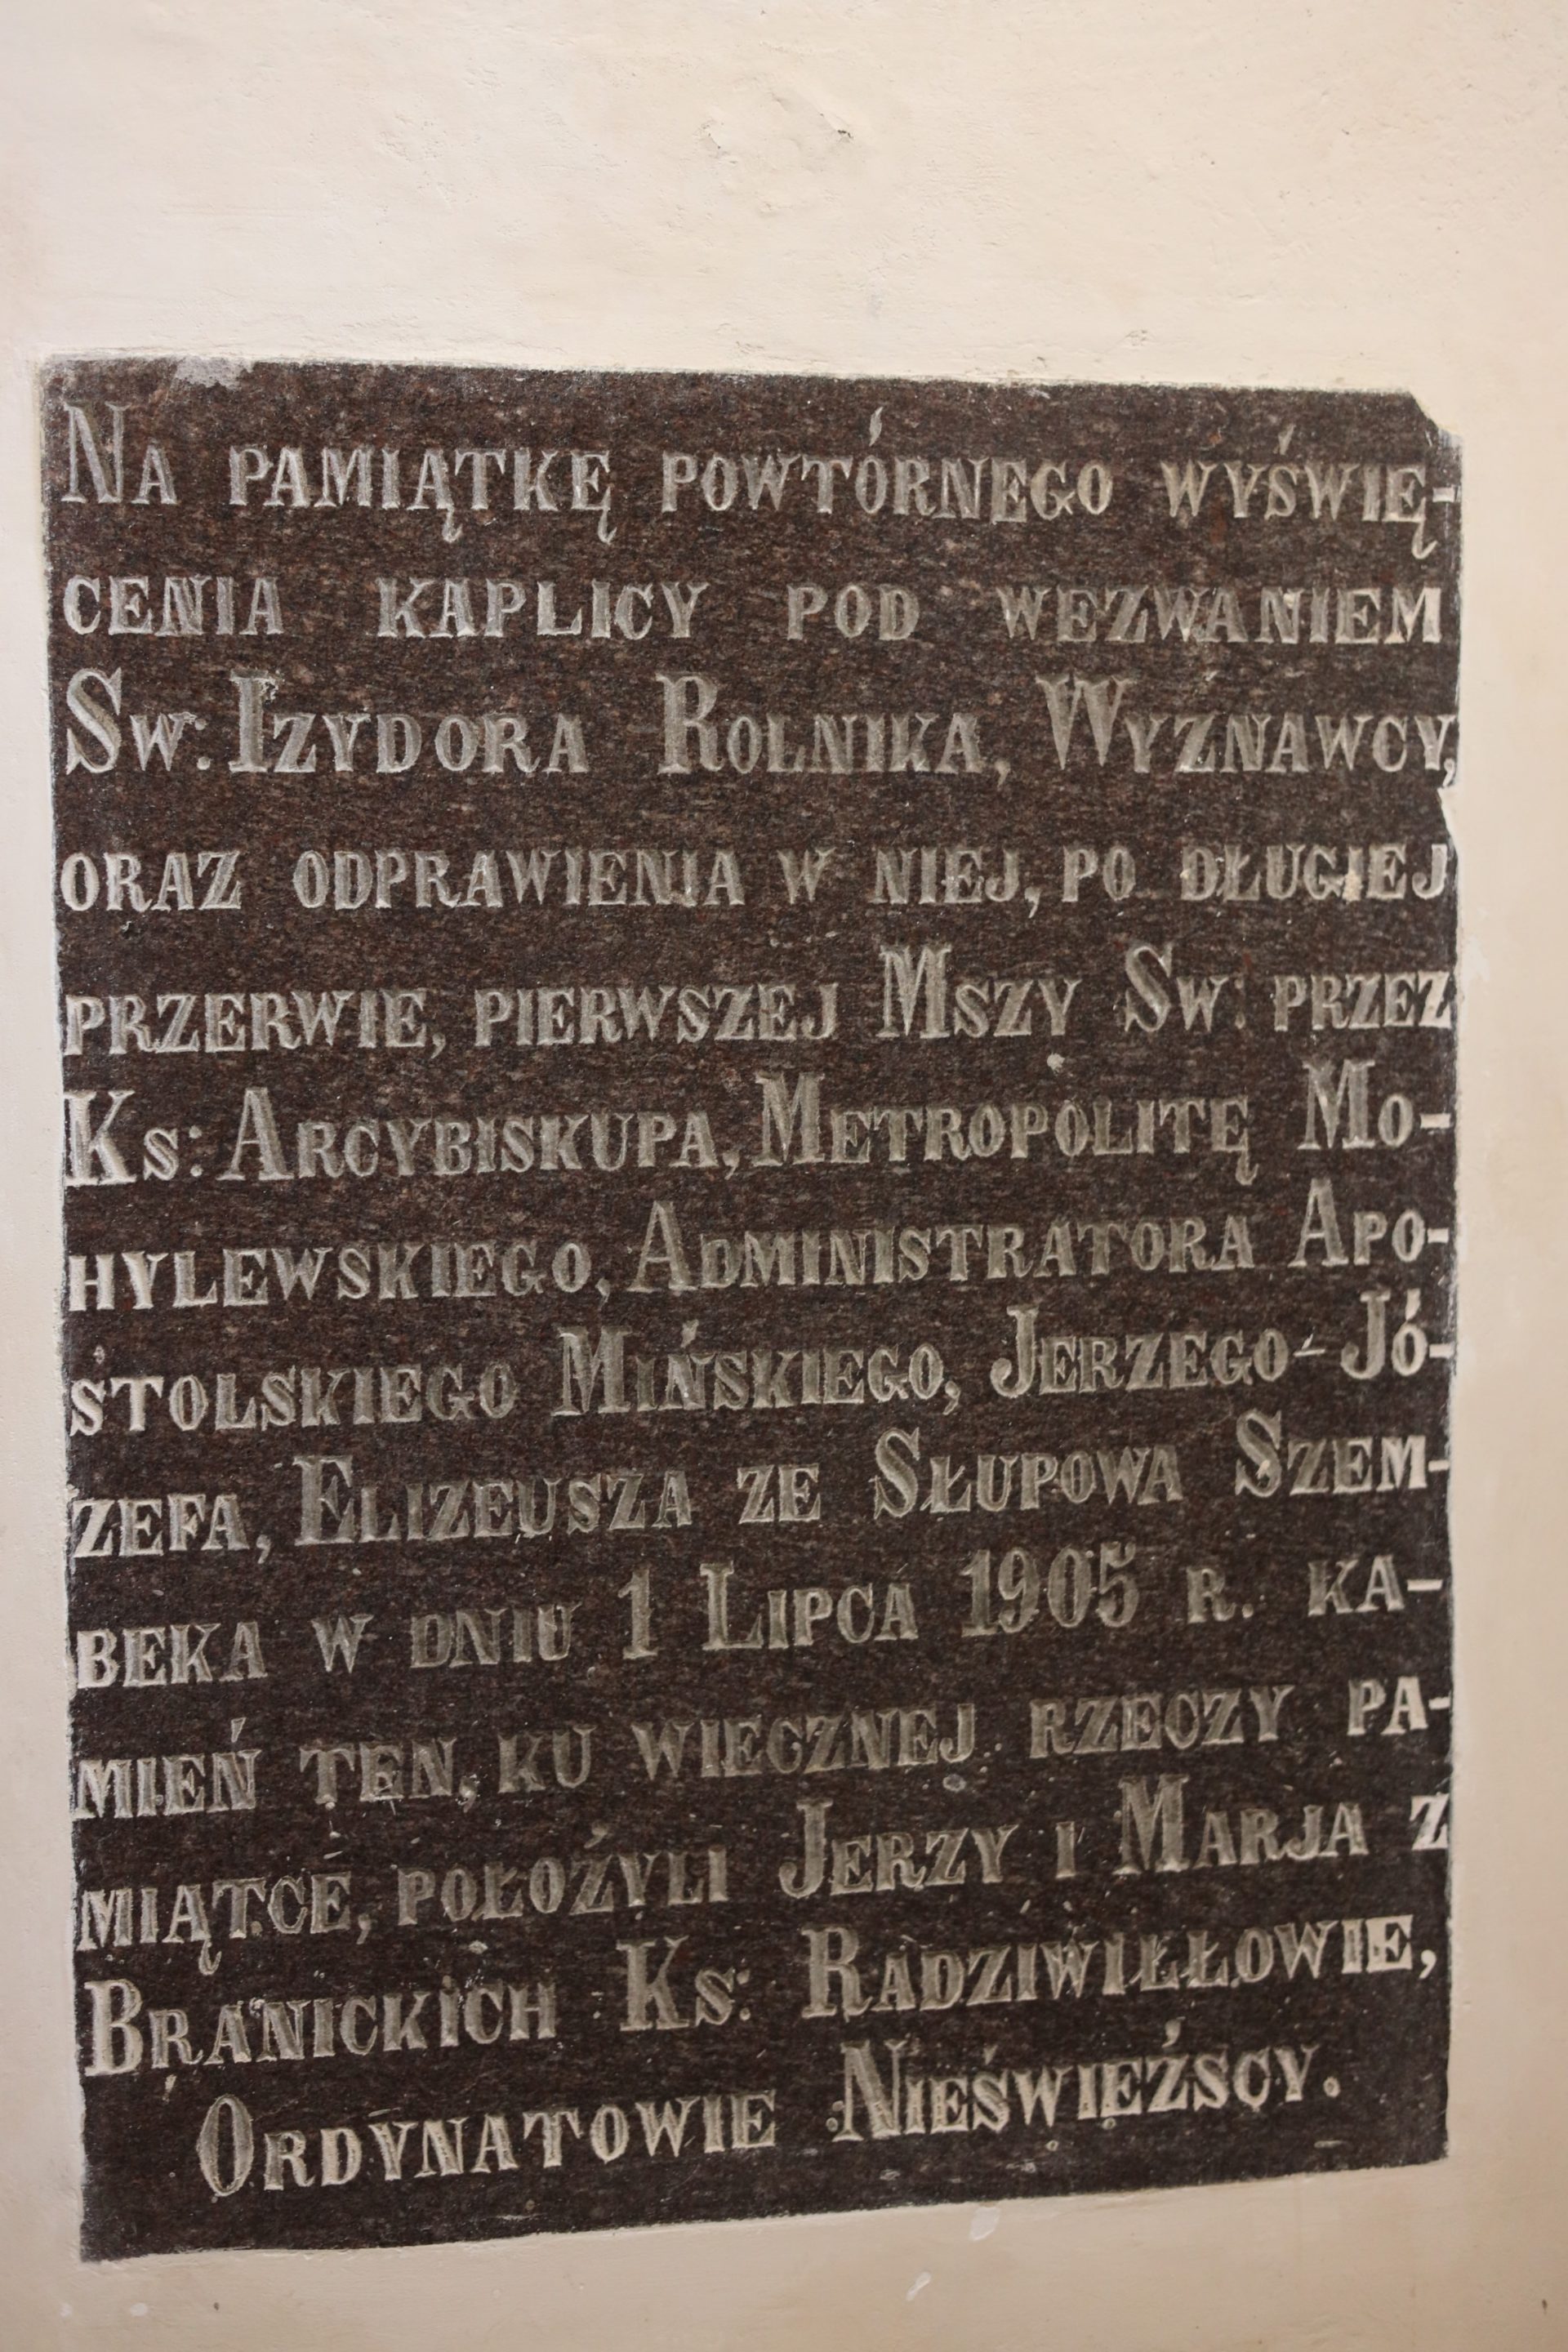 NA PAMIĄTKĘ POWTÓRNEGO WYŚWIĘ-
CENIA KAPLICY POD WEZWANIEM
SW: IZYDORA ROLNIKA, WYZNAWCY,
ORAZ ODPRAWIENIA W NIEJ, PO DŁUGIEJ
PRZERWIE, PIERWSZEJ MSZY SW: PRZEZ
KS: ARCYBISKUPA, METROPOLITĘ MO-
HYLEWSKIEGO, ADMINISTRATORA APO-
STOLSKIEGO MIŃSKIEGO, JERZEGO-JÓ-
ZEFA, ELIZEUSZA ZE SŁUPOWA SZEM-
BEKA W DNIU 1 LIPCA 1905 R. KA-
MIEŃ TEN, KU WIECZNEJ RZECZY PA-
MIĄTCE, POŁOŹYLI JERZY I MARJA Z
BRANICKICH KS: RADZIWIŁŁOWIE,
ORDYNATOWIE NIEŚWIEŹSCY.